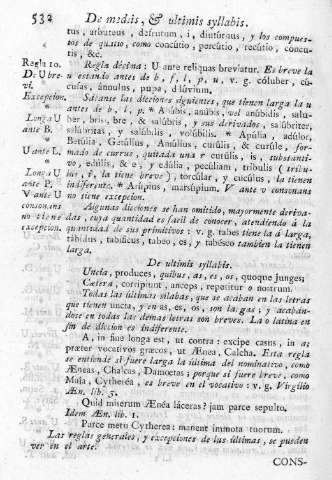 532 De mediis, & ultimis syllabis.
tus, arbuteus, defrutum, i, diutíscaus, y los compues-
tos de quatio, como concútio, percútio, recútio, concu-
tis, &c.
Regla 10. Regla dècima: U ante reliquas breviatur. Es breve la
De U bre- u estando antes de b, f, l, p, u, v. g. cóluber, có-
vi. cufas, ánnulus, pupa, diluvium.
Excepcion. Sáianse las dicciones siguientes, que tienen larga la u
antes de b, l, p: * Anubis, anúbis, vel anúbidis, salu-
Longa U ber, bris, bre, & salúbris, y sus derivados, salúbriter,
ante B. salúbritas, y salúbilis, volúbilis. * Apúlia, adúlor,
Betulia, Getúlius, Amúlius, curúlis, & curúle, for-
U ante L. mado de currus, quitada una r curúlis, is, substanti-
vo, edúlis, & e, y edúlia, pecúlium, tribúlis (tribu-
Longa U lus, i, la tiene breve), torcúlar, y cucúlus, la tienen
ante P. indiferente. * Arúpius, marsúpium. V ante v consonans
V ante U no tiene excepcion.
consonans Algunas dicciones se han omitido, mayormente deriva-
no tiene das, cuya quantidad es facil de conocer, atendiendo á la
excepcion. quantidad de sus primitivos: v. g. tabes tiene la á larga,
tábidus, tabificus, tabeo, es, y tabésco tambien la tienen
larga.
De ultimis syllabis.
Uncta, produces, quibus, as, es, os, quoque junges;
Cætera, corripiunt, anceps, repetitur o nostrum.
Todas las últimas sílabas, que se acaban en las letras
que tienen uncta, y en as, es, os, son largas; y acabán-
dose en todas las demas letras son breves. La o latina en
fin de diccion es indiferente.
A, in fine longa est, ut contra: excipe casus, in a:
præter vocativos græcos, ut Ænea, Calcha. Esta regla
se entiende si fuere larga la última del nominativo, como
Æneas, Chalcas, Dametas; porque si fuere breve, como
Musa, Cytherea, es breve en el vocativo: v. g. Virgilio
Æn. lib. 3.
Quid miserum Ænéa láceras? jam parce sepulto.
Idem Æn. lib. 1.
Parce metu Cytherea: manent immota tuorum.
Las reglas generales, y excepciones de las últimas, se pueden
ver in el arte.
CONS-